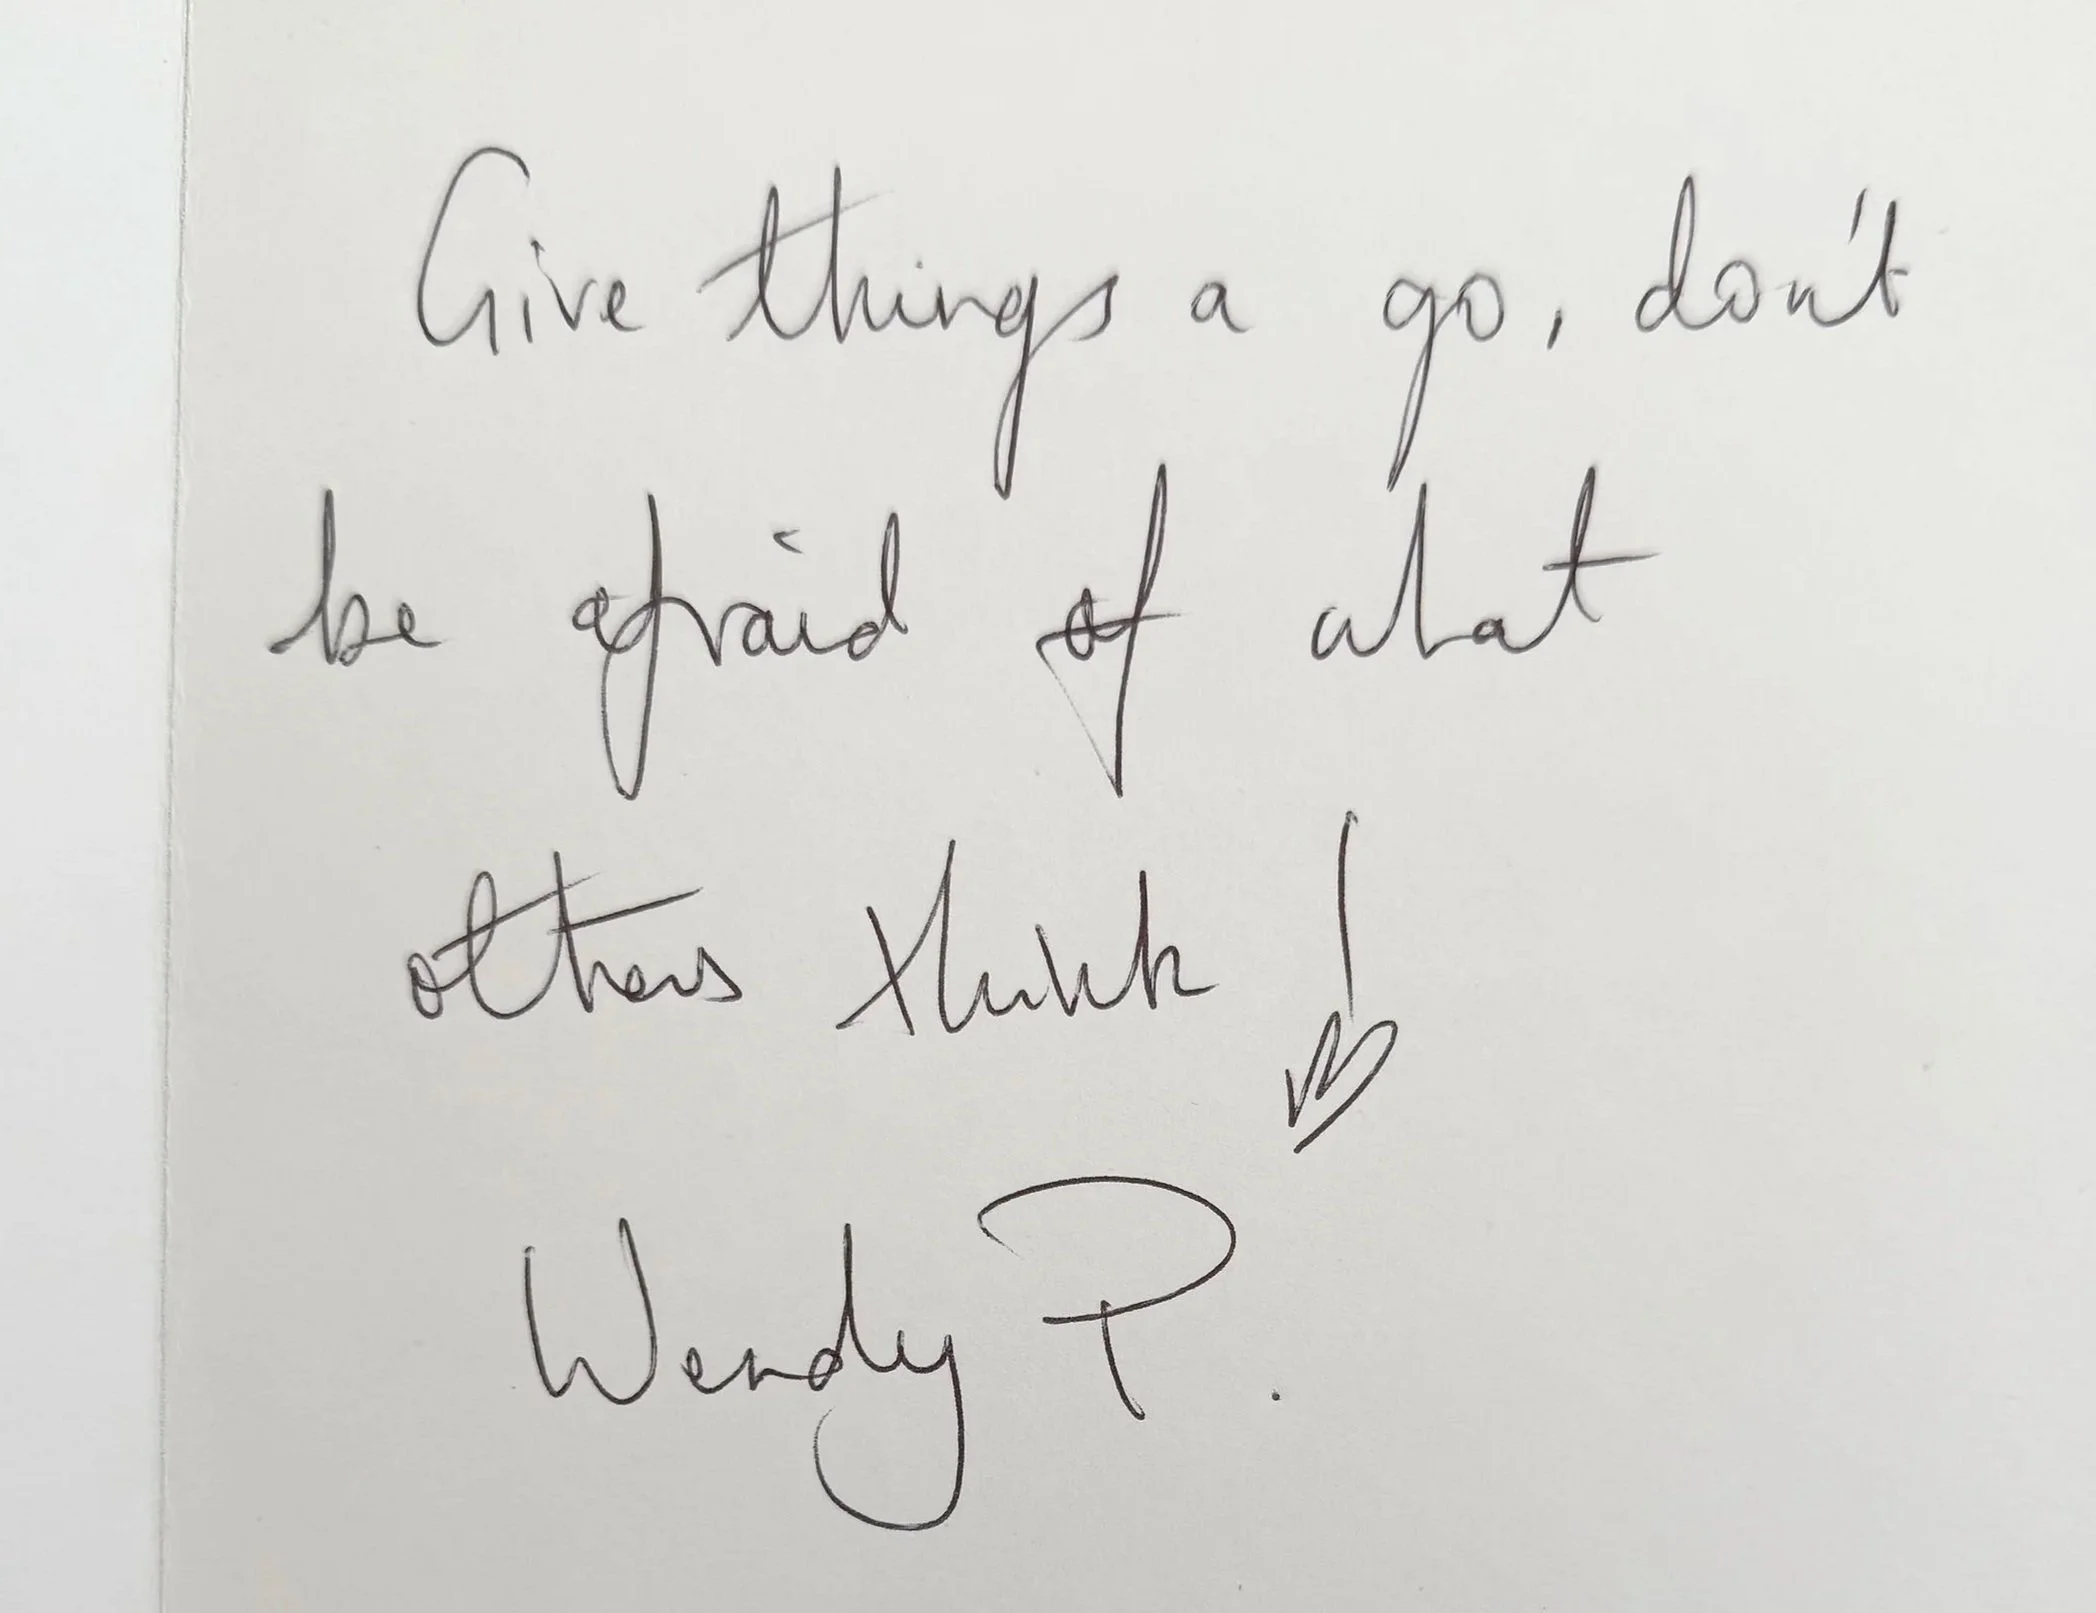 Give things a go, don't
be afraid of what
others think!
Wendy P.